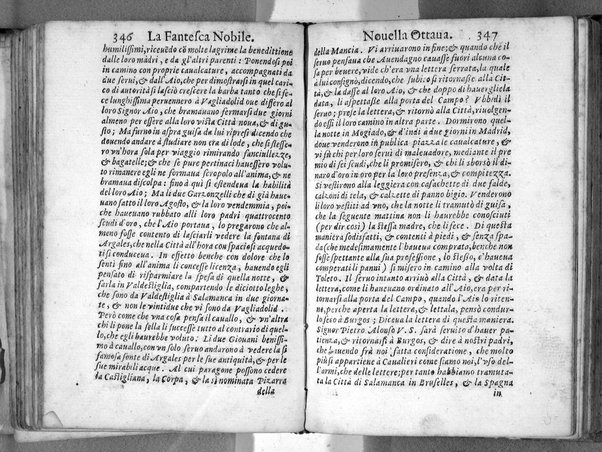 346 La Fantesca Nobile.
humilissimi, riceuẽdo cõ molte lagrime la benedittione
dalle loro madri, e da gl'altri parenti: Ponendosi poi
in camino con proprie caualcature, accompagnati da
due serui, & dall'Aio, che per dimostrarsi in quel cari
co di autorità si lasciò crescere la barba tanto che si fe
ce lunghissima peruennero à Vagliadolid oue dissero al
loro Signor Aio, che bramauano fermarsi due giorni
almeno per essere alla lor villa Città noua, & di gu-
sto; Ma furno in aspra guisa da lui ripresi dicendo che
douendo andare à studiare non era di lode, che si stesse-
ro vn'hora sola per viaggio rimirando fanciullezze,
& bagatelle; & che se pure pertinaci hauessero volu-
to rimanere egli ne formaua scropolo all'anima, & ne
bramaua discolpa: fino à qui si estendeua la habilità
del loro Aio; Ma li due Garzonzelli che di già haue
uano fatto il loro Agosto, & la loro vendemmia, poi-
che haueuano rubbato alli loro padri quattrocento
scudi d'oro, che l'Aio portaua, lo pregarono che al-
meno fosse contento di lasciarli vedere la fontana di
Argales, che nella Città all'hora con spaciosi acquedot-
ti si conduceua. In effetto benche con dolore che lo
senti fino all'anima li concesse licenza, hauendo egli
pensato di risparmiare la spesa di quella notte, &
farla in Valdestiglia, compartendo le diciotto leghe,
che sono da Valdestiglia à Salamanca in due giorna-
te, & non le vintidue che vi sono da Vagliadolid.
Però come che vna cosa pensa il cauallo, & vn'altra
chi li pone la sella li successe tutto al contrario di quel-
lo, che egli haurebbe voluto. Li due Giouani benissi-
mo à cauallo, con vn solo seruo andarono à vedere la sì
famosa fonte di Argales per le sue antiquità, & per le
sue mirabili acque. Al cui paragone possono cedere
la Castigliana, la Corpa, & la si nominata Pizarra
della
Nouella Ottaua. 347
della Mancia. Vi arriuarono in fine; & quando chè il
seruo pensaua che Auendagno cauasse fuori alcuna co-
sa per beuere, vide ch'era vna lettera serrata, la quale
à lui consignò, dicendo, che subito si ritornasse alla Cit-
tà, & la dasse al loro Aio, & che doppo di hauergliela
data, li aspettasse alla porta del Campo? Vbbidì il
seruo; prese la lettera, & ritornò alla Città, riuolgen-
do essi il loro camino in altra parte. Dormirono quel-
la notte in Mogiado, & d'indi à due giorni in Madrid,
doue venderono in publica piazza le caualcature, &
vi fù chi per loro serui di maleuadore, mediante il pre
mio di sei scudi, che li promisero, & chi li sborsò il di-
naro d'oro in oro per la loro presenza, & compitezza.
Si vestirono alla leggiera con cafachette di due falde,
calzoni di tela, & calzette di panno bigio. Venderono
li loro vestiti ad vno, che la notte li tramutò di guisa,
che la seguente mattina non li haurebbe conosciuti
(per dir così) la stessa madre, che li fece. Di questa
maniera sodisfatti, & contenti à piedi, & senza spa-
da (che medesimamente l'haueua comprato, benche non
fosse spettante alla sua professione, lo stesso, c'haueua
comperati li panni) si misero in camino alla volta di
Toleto. Il seruo intanto arriuò alla Città, & data la
lettera, come li haueuano ordinato all'Aio, era per ri-
tornarsi alla porta del Campo, quando l'Aio lo riten-
ne, perche aperta la lettera, & lettala, pensò condur-
selo à Burgos; Diceua la lettera di questa maniera.
Signor Pietro Alonso V. S. sarà seruito d'hauer pa-
tienza, & ritornarsi à Burgos, & dire à nostri padri,
che hauendo frà noi fatta consideratione, che molto
più si appartiene à Caualieri come siamo noi, l'vso del-
l'armi, che delle lettere; per tanto habbiamo tramuta-
ta la Città di Salamanca in Bruselles, & la Spagna
in